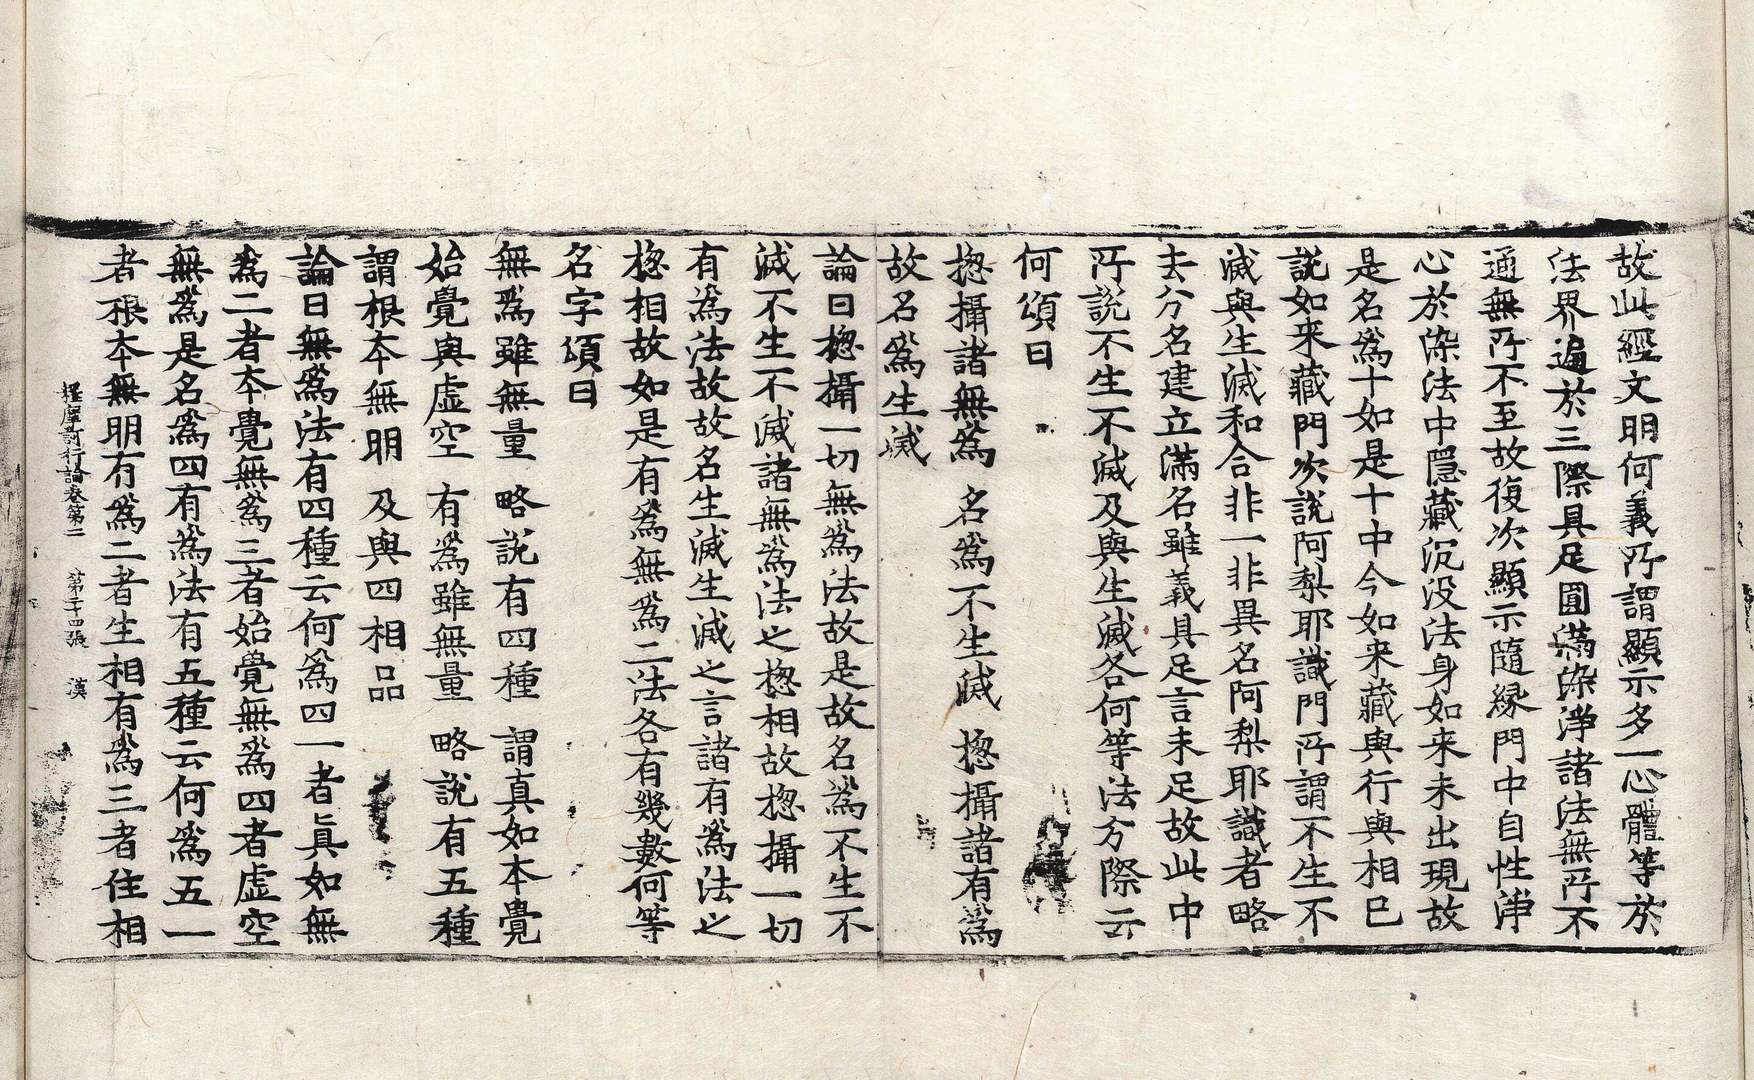 故此經文明何義所謂顯示多一心體等於
法界遍於三際具足圓滿染淨諸法無所不
通無所不至故復次顯示隨緣門中自性淨
心於染法中隱藏沉没法身如来未出現故
是名爲十如是十中今如来藏與行與相已
説如来藏門次説阿梨耶識門所謂不生不
滅與生滅和合非一非異名阿梨耶識者略
去分名建立滿名雖義具足言未足故此中
所説不生不滅及與生滅各何等法分際云
何頌曰
揔攝諸無爲 名爲不生滅 揔攝諸有爲
故名爲生滅
論曰揔攝一切無爲法故是故名爲不生不
滅不生不滅諸無爲法之揔相故揔攝一切
有爲法故故名生滅生滅之言諸有爲法之
揔相故如是有爲無爲二法各有幾數何等
名字頌曰
無爲雖無量 略説有四種 謂真如本覺
始覺與虛空 有爲雖無量 略説有五種
謂根本無明 及與四相品
論曰無爲法有四種云何爲四一者眞如無
爲二者本覺無爲三者始覺無爲四者虛空
無爲是名爲四有爲法有五種云何爲五一
者根本無明有爲二者生相有爲三者住相
釋摩訶衍論卷第二 第二十四張 漢